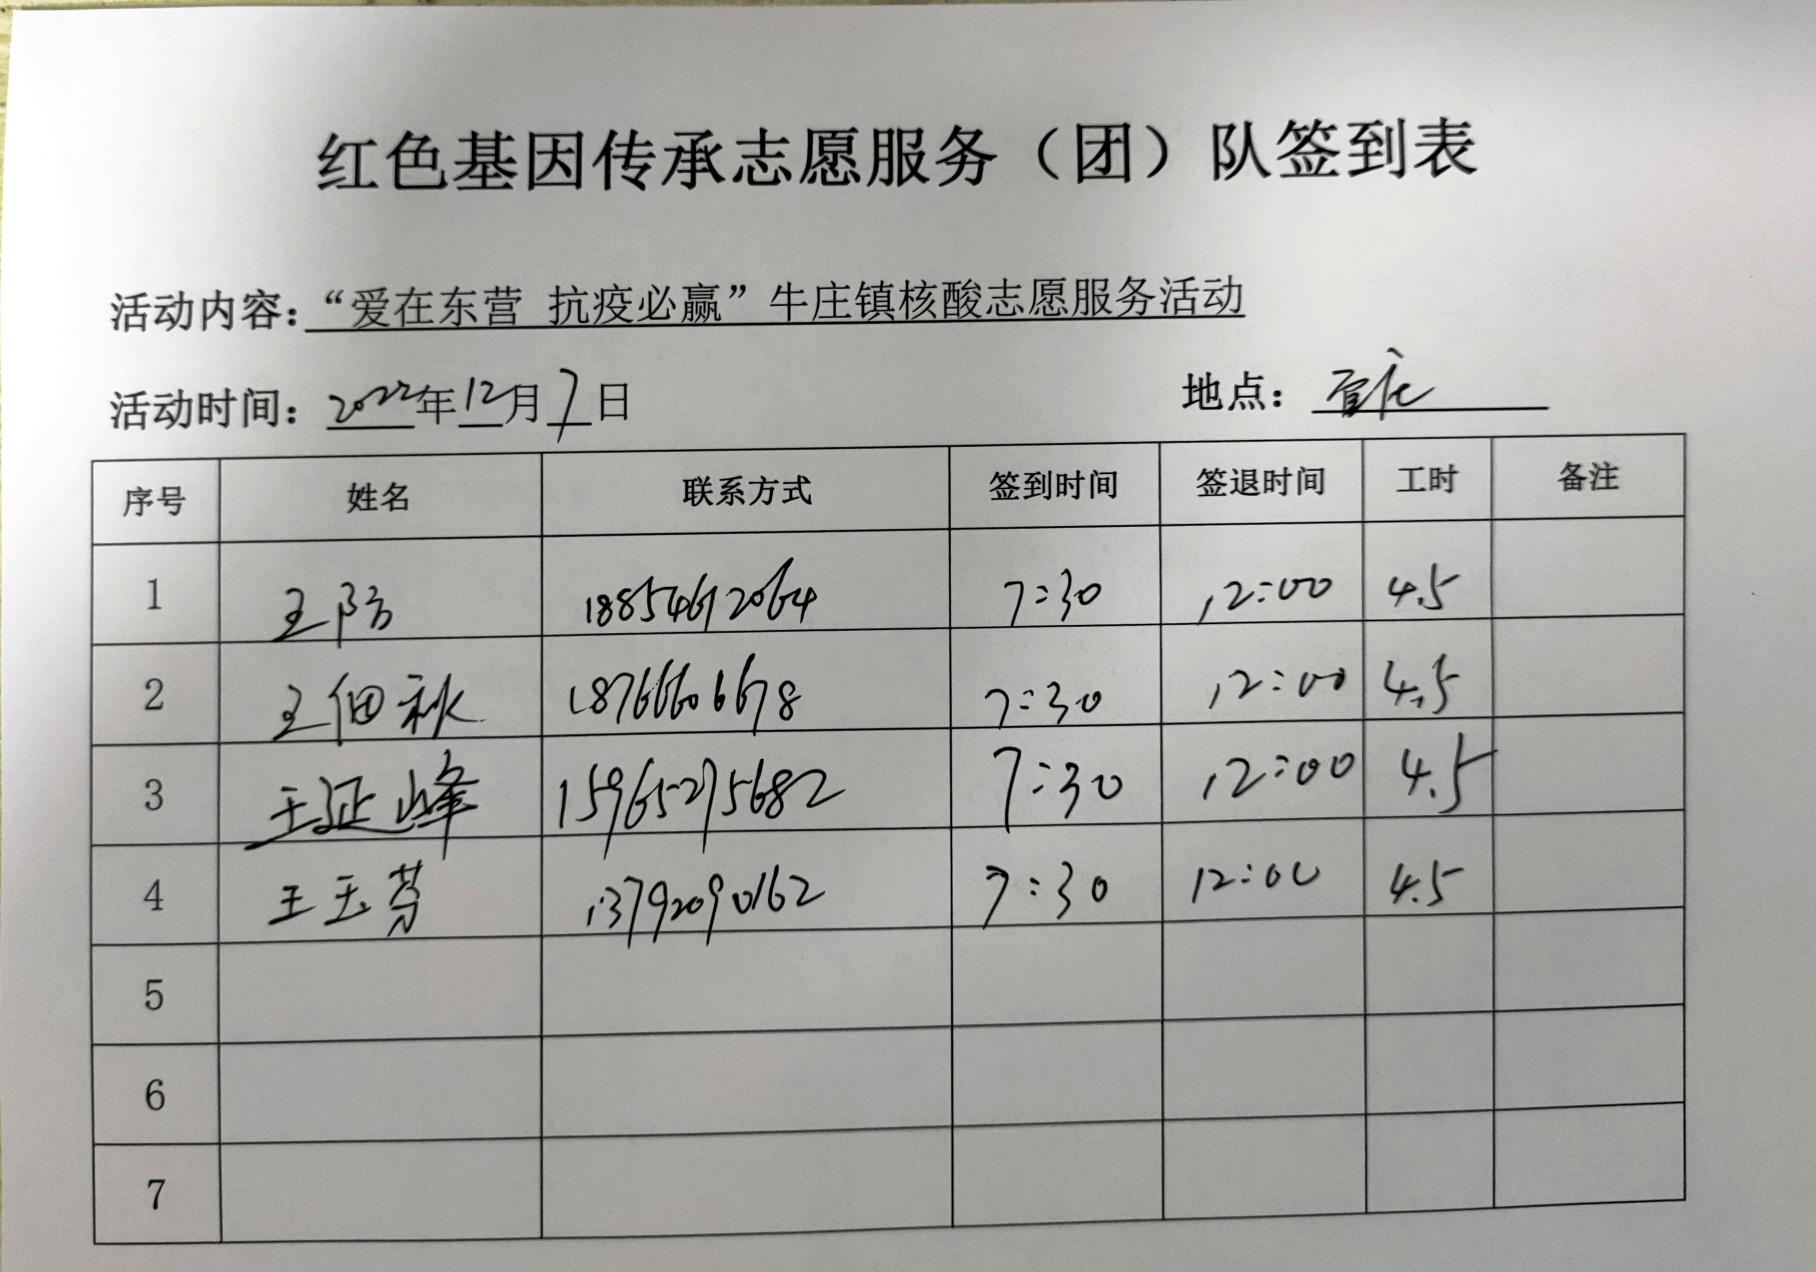 红色基因传承志愿服务（团）队签到表
活动内容：“爱在东营 抗疫必赢”牛庄镇核酸志愿服务活动
活动时间：2022年12月7日 地点：
序号 姓名 联系方式 签到时间 签退时间 工时 备注
1 王防 18854612064 7:30 12:00 4.5
2 王佃秋 18766606678 7:30 12:00 4.5
3 王延峰 15965275682 7:30 12:00 4.5
4 王玉芬 13792090162 7:30 12:00 4.5
5
6
7